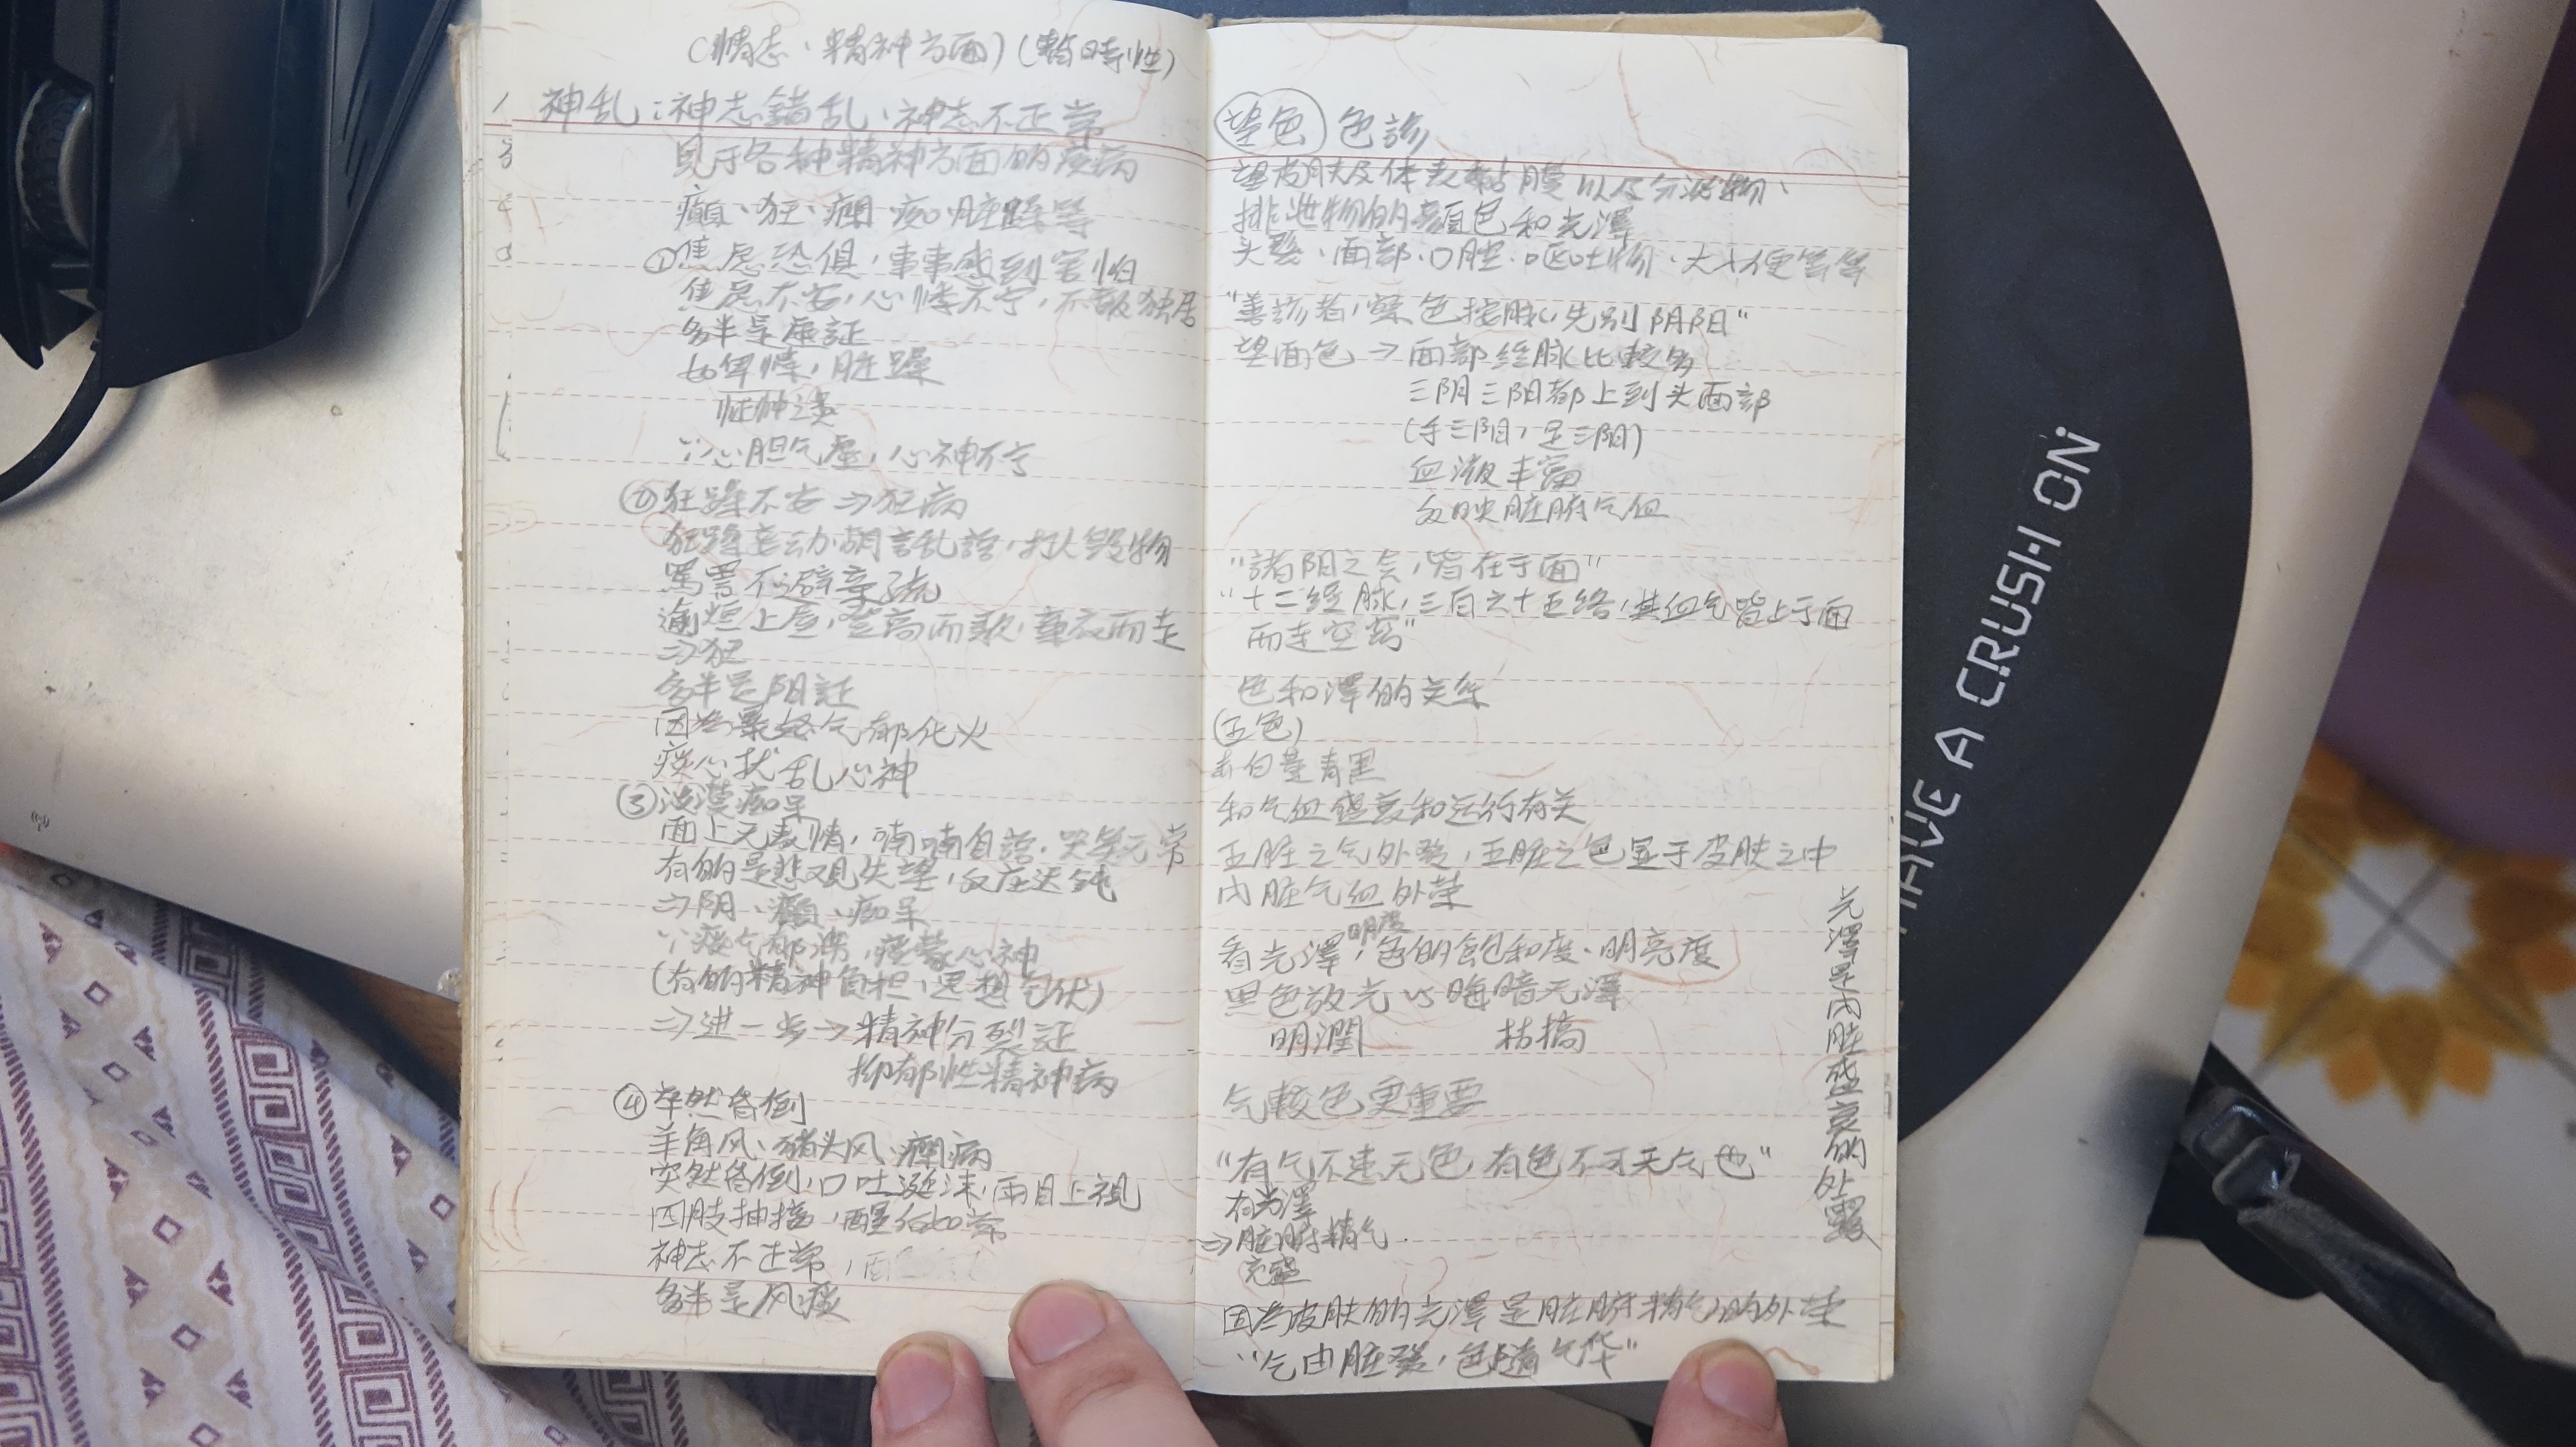 (情志、精神方面)(暫時性)
神乱：神志錯乱、神志不正常
見于各种精神方面的疾病
癲、狂、癇、痴、脏躁等
①焦慮恐俱，事事感到害怕
焦慮不安，心悸不宁，不敢独居
多半是虛証
如卑惵，脏躁
怔忡
∵心胆气虛，心神不宁
②狂躁不安⇒狂病
狂躁妄动，胡言乱語，打人毁物
罵詈不避亲疏
逾垣上屋，登高而歌，棄衣而走
⇒狂
多半是阳証
因为暴怒气郁化火
痰火扰乱心神
③淡漠痴呆
面上无表情，喃喃自語，哭笑无常
有的是悲观失望，反应迟鈍
⇒阴、癲、痴呆
∵痰气郁滯，痰蒙心神
(有的精神負担，思想包伏)
⇒进一步→精神分裂証
抑郁性精神病
④卒然昏倒
羊角风、豬头风、癇病
突然昏倒，口吐涎沫，兩目上視
四肢抽搐，醒后如常
神志不正常，
多半是风痰
望色 色診
望皮肤及体表黏膜以及分泌物、
排泄物的顏色和光澤
头发、面部、口腔、呕吐物、大小便等等
"善診者，察色按脉，先別阴阳"
望面色→面部经脉比較多
三阴三阳都上到头面部
(手三阳，足三阳)
血液丰富
反映脏腑气血
"諸阳之会，皆在于面"
"十二经脉，三百六十五络，其血气皆上于面
而走空窍"
色和澤的关系
(五色)
赤白黃青黑
和气血盛衰和运行有关
五脏之气外發，五脏之色显于皮肤之中
内脏气血外荣
明度
看光澤，色的飽和度、明亮度
黑色放光 vs 晦暗无澤
明潤 枯搞
气較色更重要
"有气不遠无色，有色不可无气也"
有光澤
⇒脏腑精气
充盛
因为皮肤的光澤是脏腑精气的外荣
"气由脏發，色隨气华"
光澤是内脏盛衰的外露
HAVE A CRUSH ON